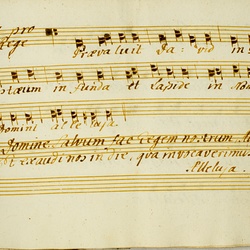 pro
Rege
Prævaluit Da- vid in
stæum in funda et Lapide in Nom
Domini alleluja.
Domine, Salvum fac Regem nostrum
et exaudi nos in die, qua invocaverimus
Alleluja.